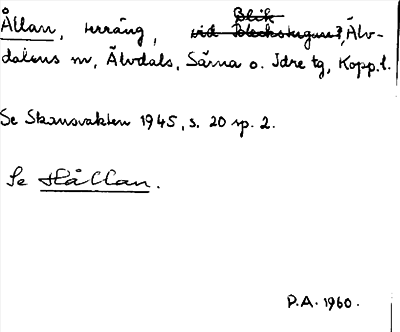 Ållan, terräng, vid Bleckstugan?, Älv-
dalens sn, Älvdals, Särna o. Idre tg, Kopp.l.
Se Skansvakten 1945, s. 20 sp. 2.
Se Hållan.
P.A. 1960.